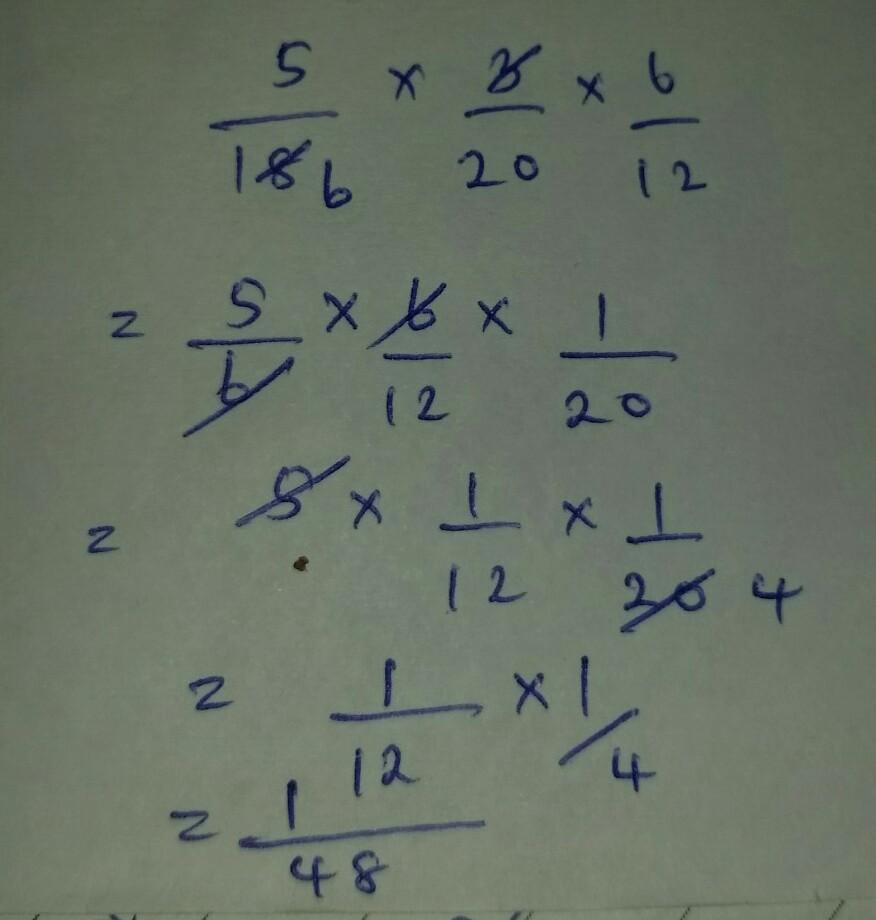 5/18 6 × 3/20 × 6/12
= 5/6 × 6/12 × 1/20
= 5 × 1/12 × 1/20 4
= 1/12 × 1/4
= 1/48